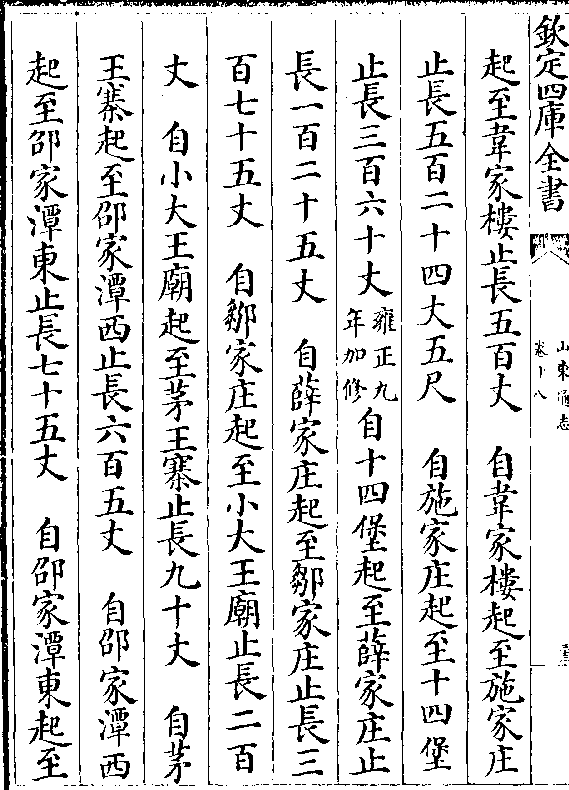 欽定四庫全書
山東通志
卷十八
起至韋家樓止長五百丈　自韋家樓起至施家庄
止長五百二十四丈五尺　自施家庄起至十四堡
止長三百六十丈雍正九年加修自十四堡起至薛家庄止
長一百二十五丈　自薛家庄起至鄒家庄止長三
百七十五丈　自鄒家庄起至小大王廟止長二百
丈　自小大王廟起至茅王寨止長九十丈　自茅
王寨起至邵家潭西止長六百五丈　自邵家潭西
起至邵家潭東止長七十五丈　自邵家潭東起至